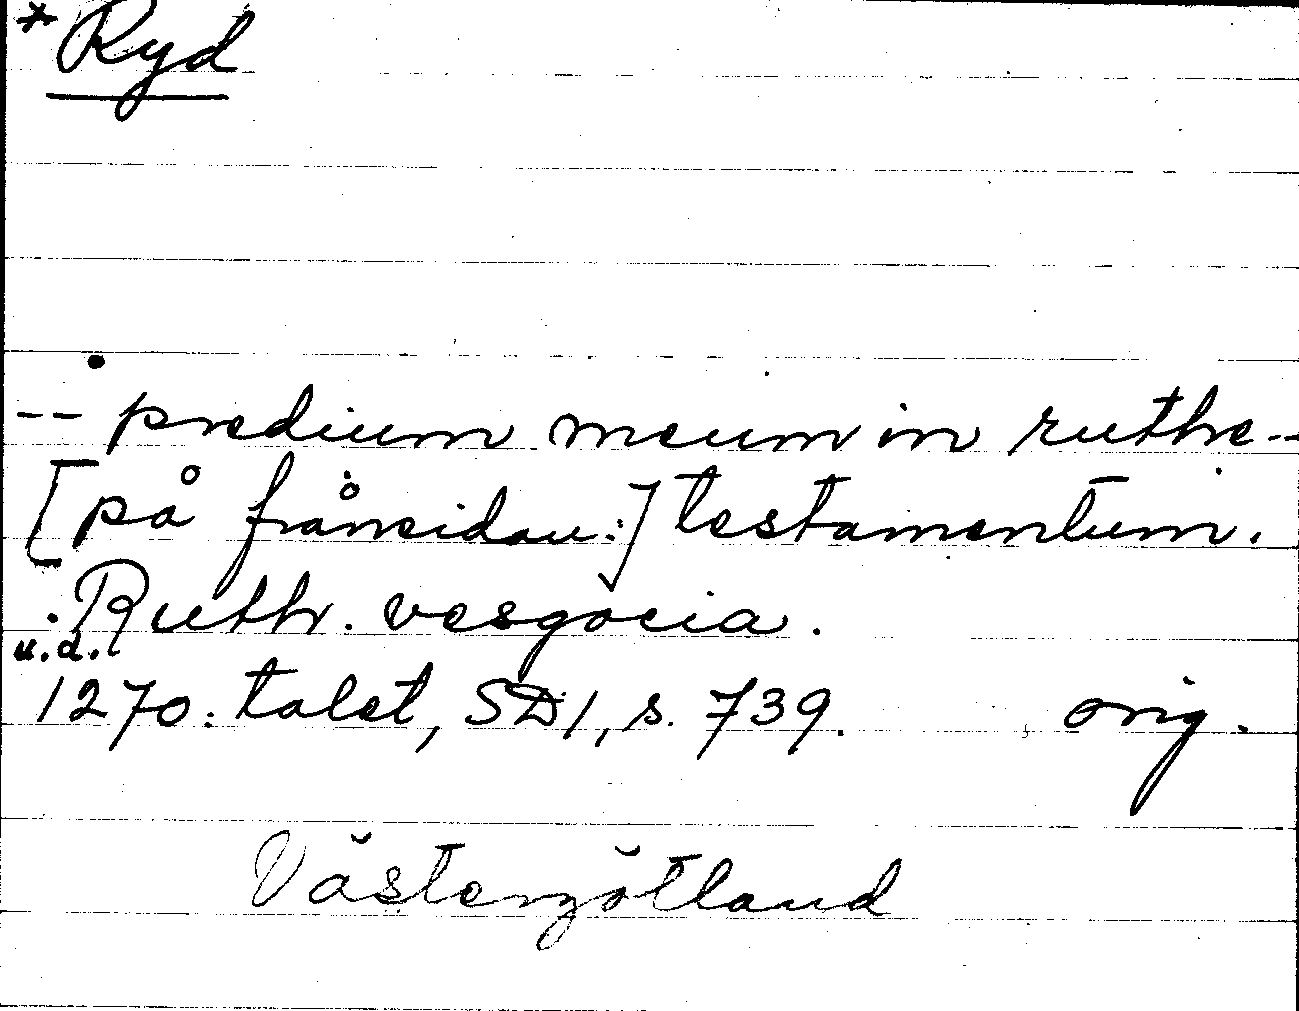 *Ryd
-- predium meum in ruthe--
[på frånsidan:] testamentum.
.Ruth. vesgocia.
u.d.
1270. talet, SD1, s. 739. orig.
Västergötland